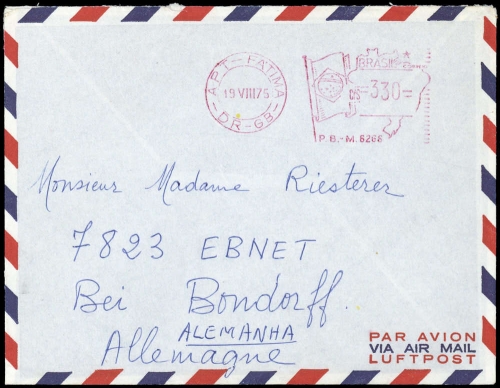 APT-FATIMA
19 VIII 75
DR-GB
BRASIL
CR$ =330=
P.B.-M. 6266
Monsieur Madame Riesterer
7823 EBNET
Bei Bondorff.
ALEMANHA
Allemagne
PAR AVION
VIA AIR MAIL
LUFTPOST